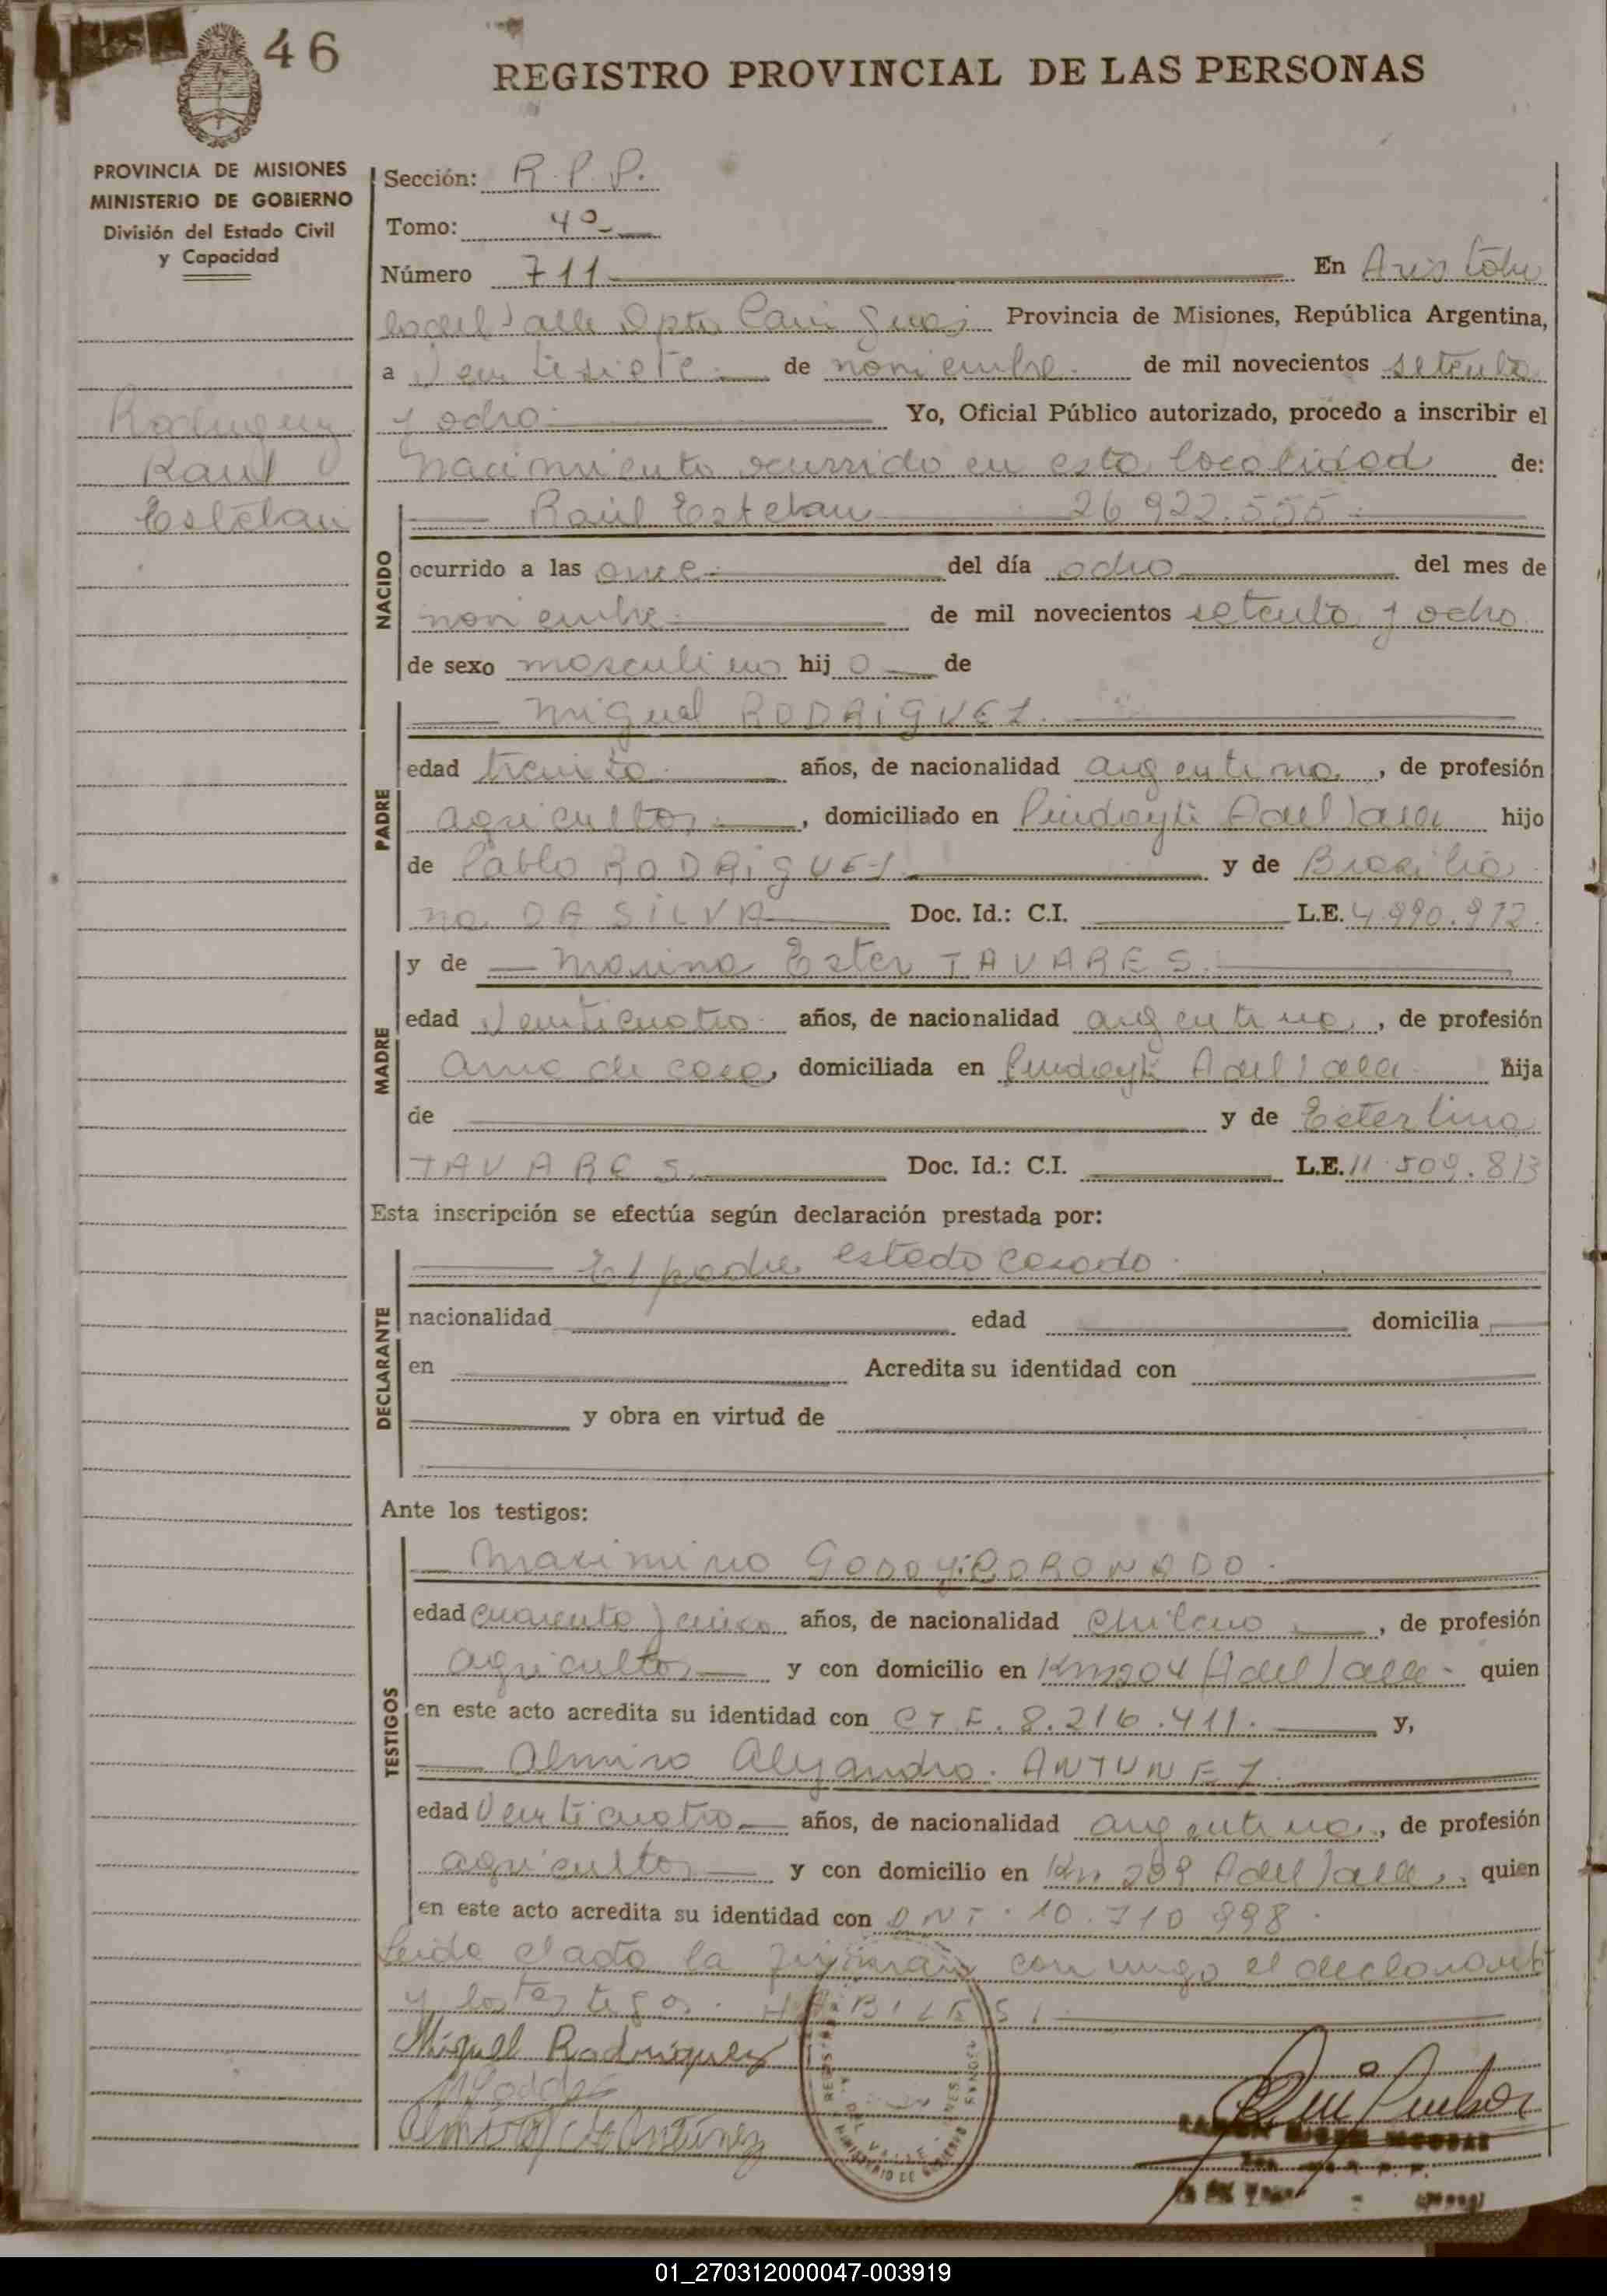 46
REGISTRO PROVINCIAL DE LAS PERSONAS
PROVINCIA DE MISIONES
MINISTERIO DE GOBIERNO
División del Estado Civil
y Capacidad
Rodriguez
Raul
Esteban
Sección: R.P.P.
Tomo: 4º
Número 711 En Aristobu
lo del Valle Dpto Cainguas Provincia de Misiones, República Argentina,
a Veintisiete de noviembre de mil novecientos setenta
y ocho Yo, Oficial Público autorizado, procedo a inscribir el
nacimiento ocurrido en esta localidad de:
NACIDO
Raúl Esteban 26.922.555
ocurrido a las once del día ocho del mes de
noviembre de mil novecientos setenta y ocho
de sexo masculino hijo de
PADRE
Miguel RODRIGUEZ
edad treinta años, de nacionalidad argentina, de profesión
agricultor, domiciliado en Pindayti A del Valle hijo
de Pablo RODRIGUEZ y de Brasilia
na DA SILVA Doc. Id.: C.I. L.E. 4.990.972.
MADRE
y de Marina Ester TAVARES.
edad Veinticuatro años, de nacionalidad argentina, de profesión
ama de casa, domiciliada en Pindayti A del Valle hija
de y de Esterlina
TAVARES Doc. Id.: C.I. L.E. 11.509.813
Esta inscripción se efectúa según declaración prestada por:
DECLARANTE
El padre estado casado.
nacionalidad edad domicilia
en Acredita su identidad con
y obra en virtud de
Ante los testigos:
TESTIGOS
Maximino GODOY CORONADO.
edad cuarenta y cinco años, de nacionalidad Chileno, de profesión
agricultor y con domicilio en Km 204 A del Valle quien
en este acto acredita su identidad con C I F. 8.216.411. y,
Almiro Alejandro. ANTUNEZ.
edad Veinticuatro años, de nacionalidad argentina, de profesión
agricultor y con domicilio en Km 209 A del Valle, quien
en este acto acredita su identidad con DNI. 10.710.998.
Leida el acta la firmaran conmigo el declarante
y los testigos. HABILES.
Miguel Rodriguez
01_270312000047-003919